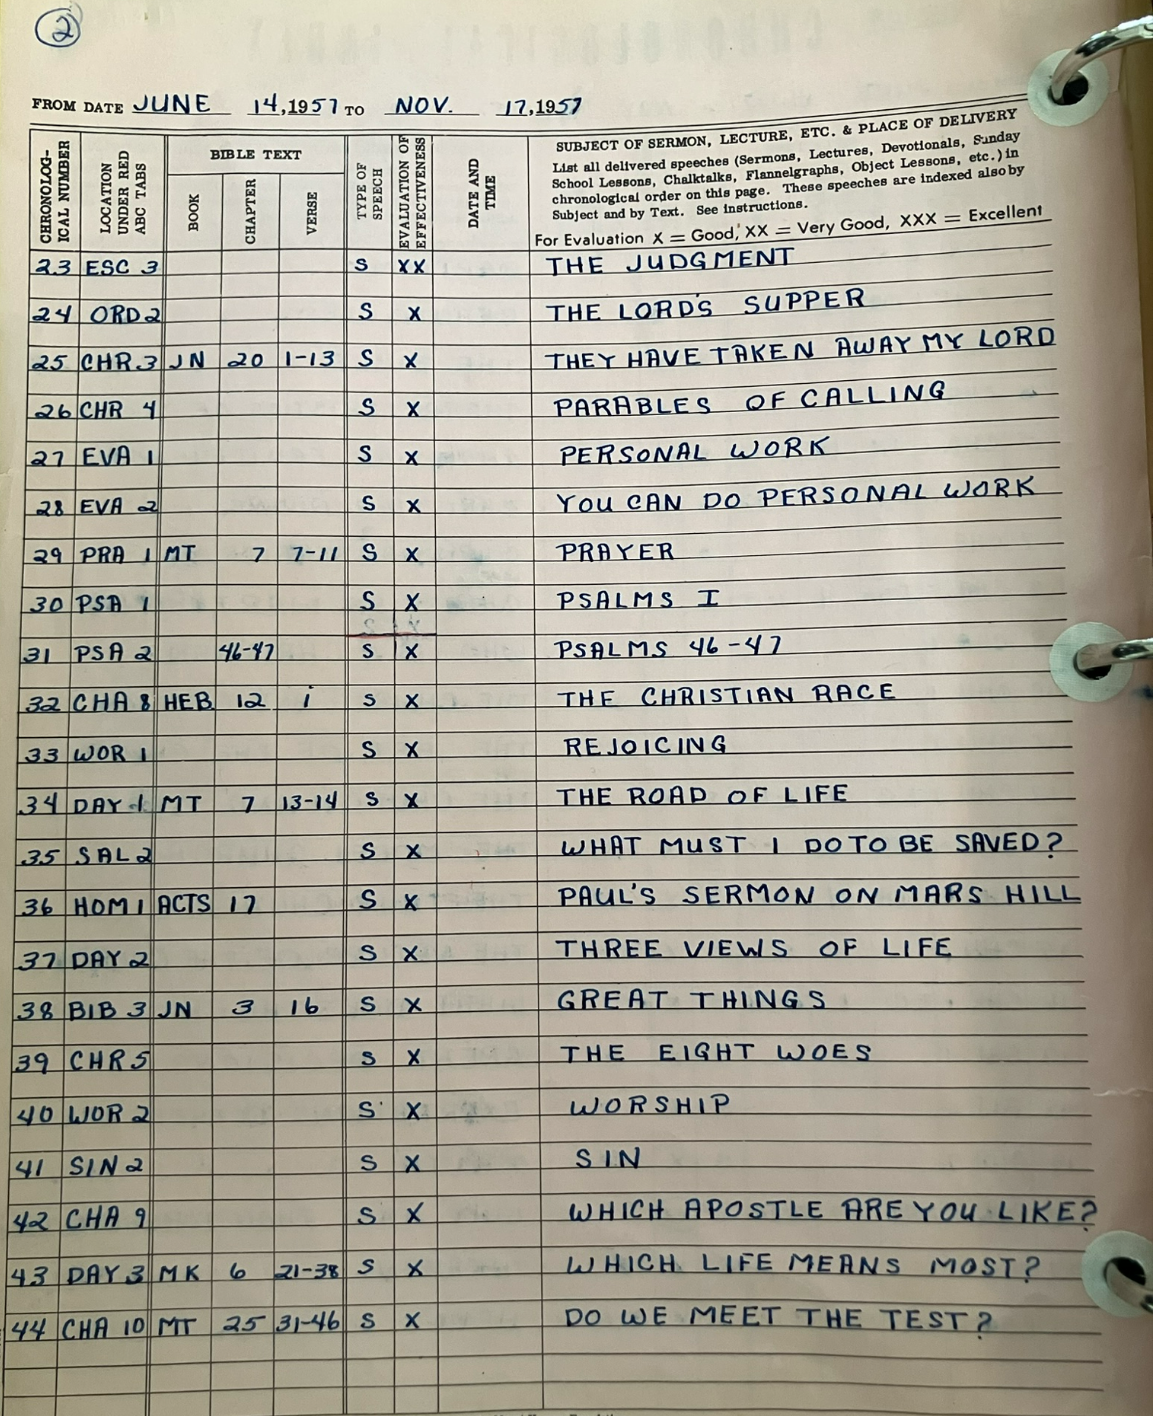 2
FROM DATE JUNE 14, 1957 TO NOV. 17, 1957
CHRONOLOG-ICAL NUMBER
LOCATION UNDER RED ABC TABS
BIBLE TEXT
BOOK
CHAPTER
VERSE
TYPE OF SPEECH
EVALUATION OF EFFECTIVENESS
DATE AND TIME
SUBJECT OF SERMON, LECTURE, ETC. & PLACE OF DELIVERY
List all delivered speeches (Sermons, Lectures, Devotionals, Sunday
School Lessons, Chalktalks, Flannelgraphs, Object Lessons, etc.) in
chronological order on this page. These speeches are indexed also by
Subject and by Text. See instructions.
For Evaluation X = Good, XX = Very Good, XXX = Excellent
23 ESC 3 S XX THE JUDGMENT
24 ORD 2 S X THE LORD'S SUPPER
25 CHR 3 JN 20 1-13 S X THEY HAVE TAKEN AWAY MY LORD
26 CHR 4 S X PARABLES OF CALLING
27 EVA 1 S X PERSONAL WORK
28 EVA 2 S X YOU CAN DO PERSONAL WORK
29 PRA 1 MT 7 7-11 S X PRAYER
30 PSA 1 S X PSALMS I
31 PSA 2 46-47 S X PSALMS 46-47
32 CHA 8 HEB 12 1 S X THE CHRISTIAN RACE
33 WOR 1 S X REJOICING
34 DAY 1 MT 7 13-14 S X THE ROAD OF LIFE
35 SAL 2 S X WHAT MUST I DO TO BE SAVED?
36 HOM 1 ACTS 17 S X PAUL'S SERMON ON MARS HILL
37 DAY 2 S X THREE VIEWS OF LIFE
38 BIB 3 JN 3 16 S X GREAT THINGS
39 CHR 5 S X THE EIGHT WOES
40 WOR 2 S X WORSHIP
41 SIN 2 S X SIN
42 CHA 9 S X WHICH APOSTLE ARE YOU LIKE?
43 DAY 3 MK 6 21-38 S X WHICH LIFE MEANS MOST?
44 CHA 10 MT 25 31-46 S X DO WE MEET THE TEST?